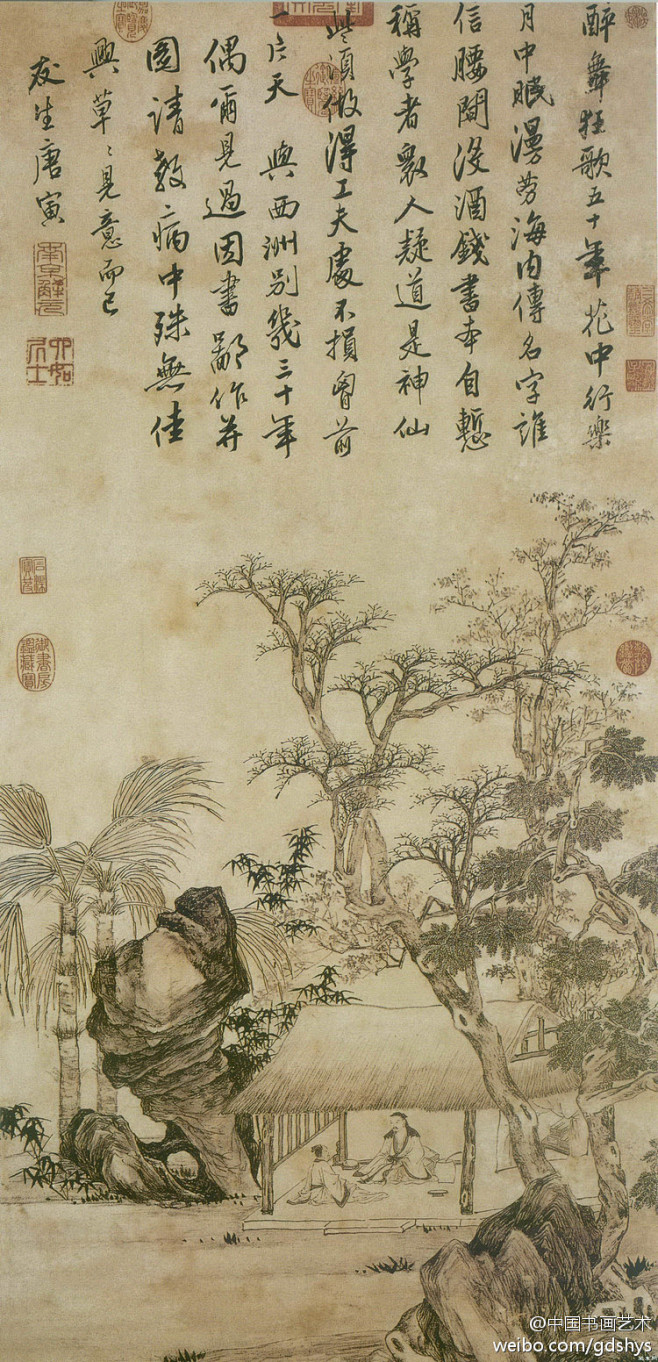 醉舞狂歌五十年花中行樂
月中眠漫勞海內傳名字誰
信腰間沒酒錢書本自慙
稱學者眾人疑道是神仙
些須做得工夫處不損胷前
一片天 與西洲別幾三十年
偶爾見過因書鄙作并
圖請教病中殊無佳
興草〻見意而已
友生唐寅
南京解元
六如居士
@中国书画艺术
weibo.com/gdshys